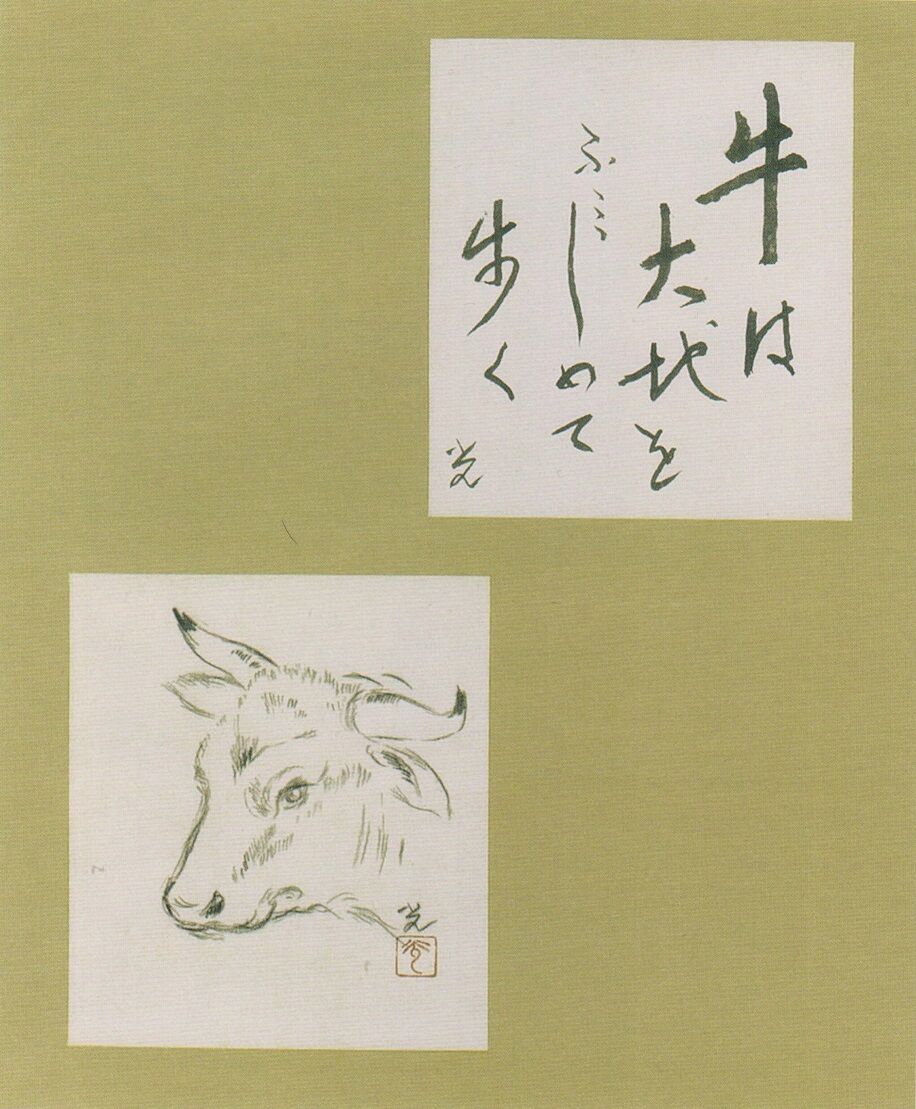 牛は
大地を
ふみしめて
歩く
光
光